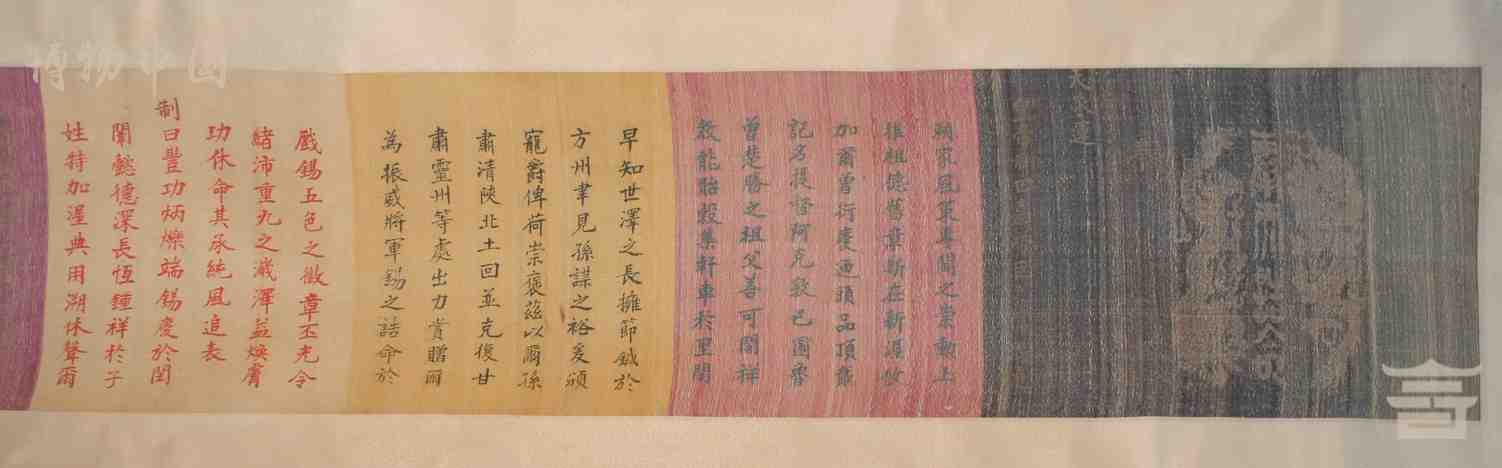 博物中國
天承運
家風策專閫之崇勳上
推祖德舊章斯在新渥攸
加爾曾衍慶迺頭品頂戴
記名提督阿克敦巴圖魯
曾楚勝之祖父善可開祥
教能貽穀集軒車於里閈
早知世澤之長擁節鉞於
方州聿見孫謀之裕爰頒
寵爵俾荷崇褒茲以爾孫
肅清陝北土回並克復甘
肅靈州等處出力賞贈爾
為振威將軍錫之誥命於
戲錫五色之徽章丕光令
緒沛重九之澤益煥膚
功休命其承純風追表
制曰豐功炳爍端錫慶於閨
闈懿德深長恆鍾祥於子
姓特加渥典用溯休聲爾